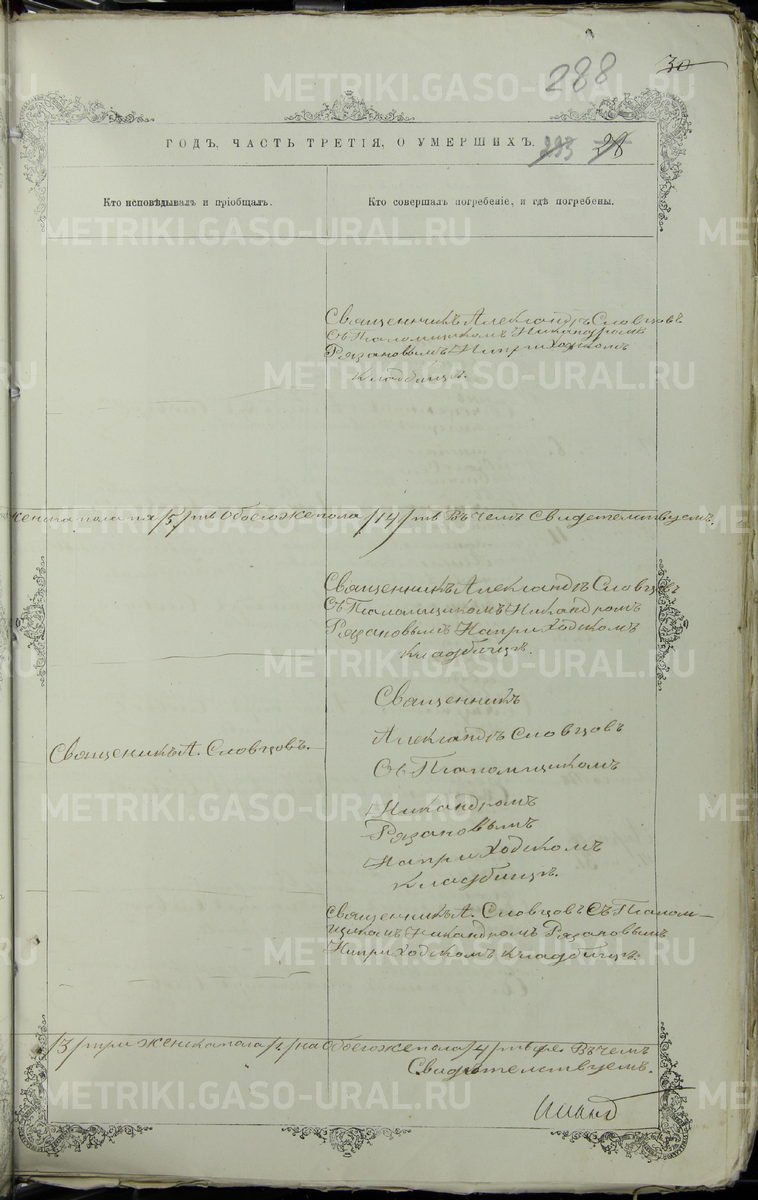 288
30
ГОДЪ, ЧАСТЬ ТРЕТІЯ, О УМЕРШИХЪ. 283 28
Кто исповѣдывалъ и пріобщалъ.
Кто совершалъ погребеніе, и гдѣ погребены.
Священникъ Александръ Словцовъ
съ Псаломщикомъ Никандромъ
Рязановымъ На приходском
кладбищѣ.
женска пола /5/ ть Обоего же пола /14/ ть Въ чемъ Свидетельствуемъ.
Священникъ Александръ Словцовъ
Съ Псаломщикомъ Никандромъ
Рязановымъ На приходскомъ
кладбищѣ.
Священникъ
Александръ Словцовъ
Съ Псаломщикомъ
Никандромъ
Рязановымъ
На приходскомъ
кладбищѣ.
Священникъ А. Словцовъ.
Священникъ А. Словцовъ Съ Псалом-
щикомъ Никандромъ Рязановымъ
На приходскомъ кладбищѣ.
/3/ три женска пола /1/ на Обоего же пола /4/ Въ чемъ
Свидѣтелствуемъ.
METRIKI.GASO-URAL.RU